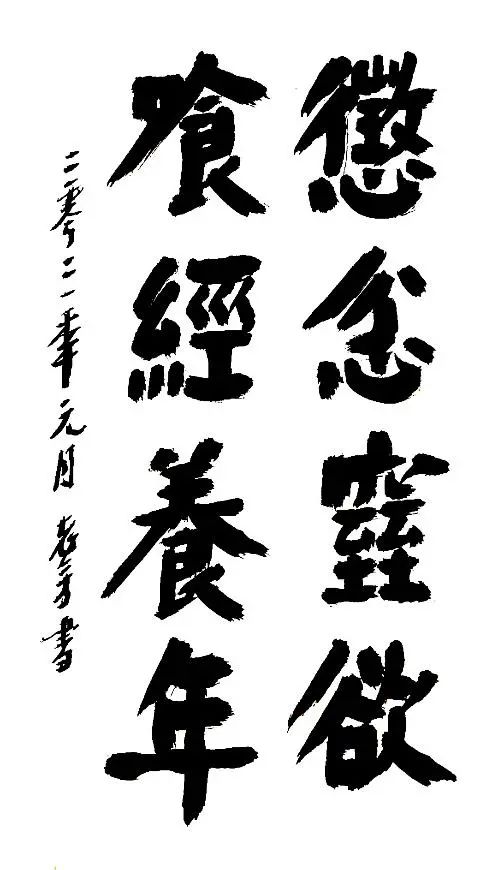 懲忿窒欲
喰經養年
二零二一年元月 書